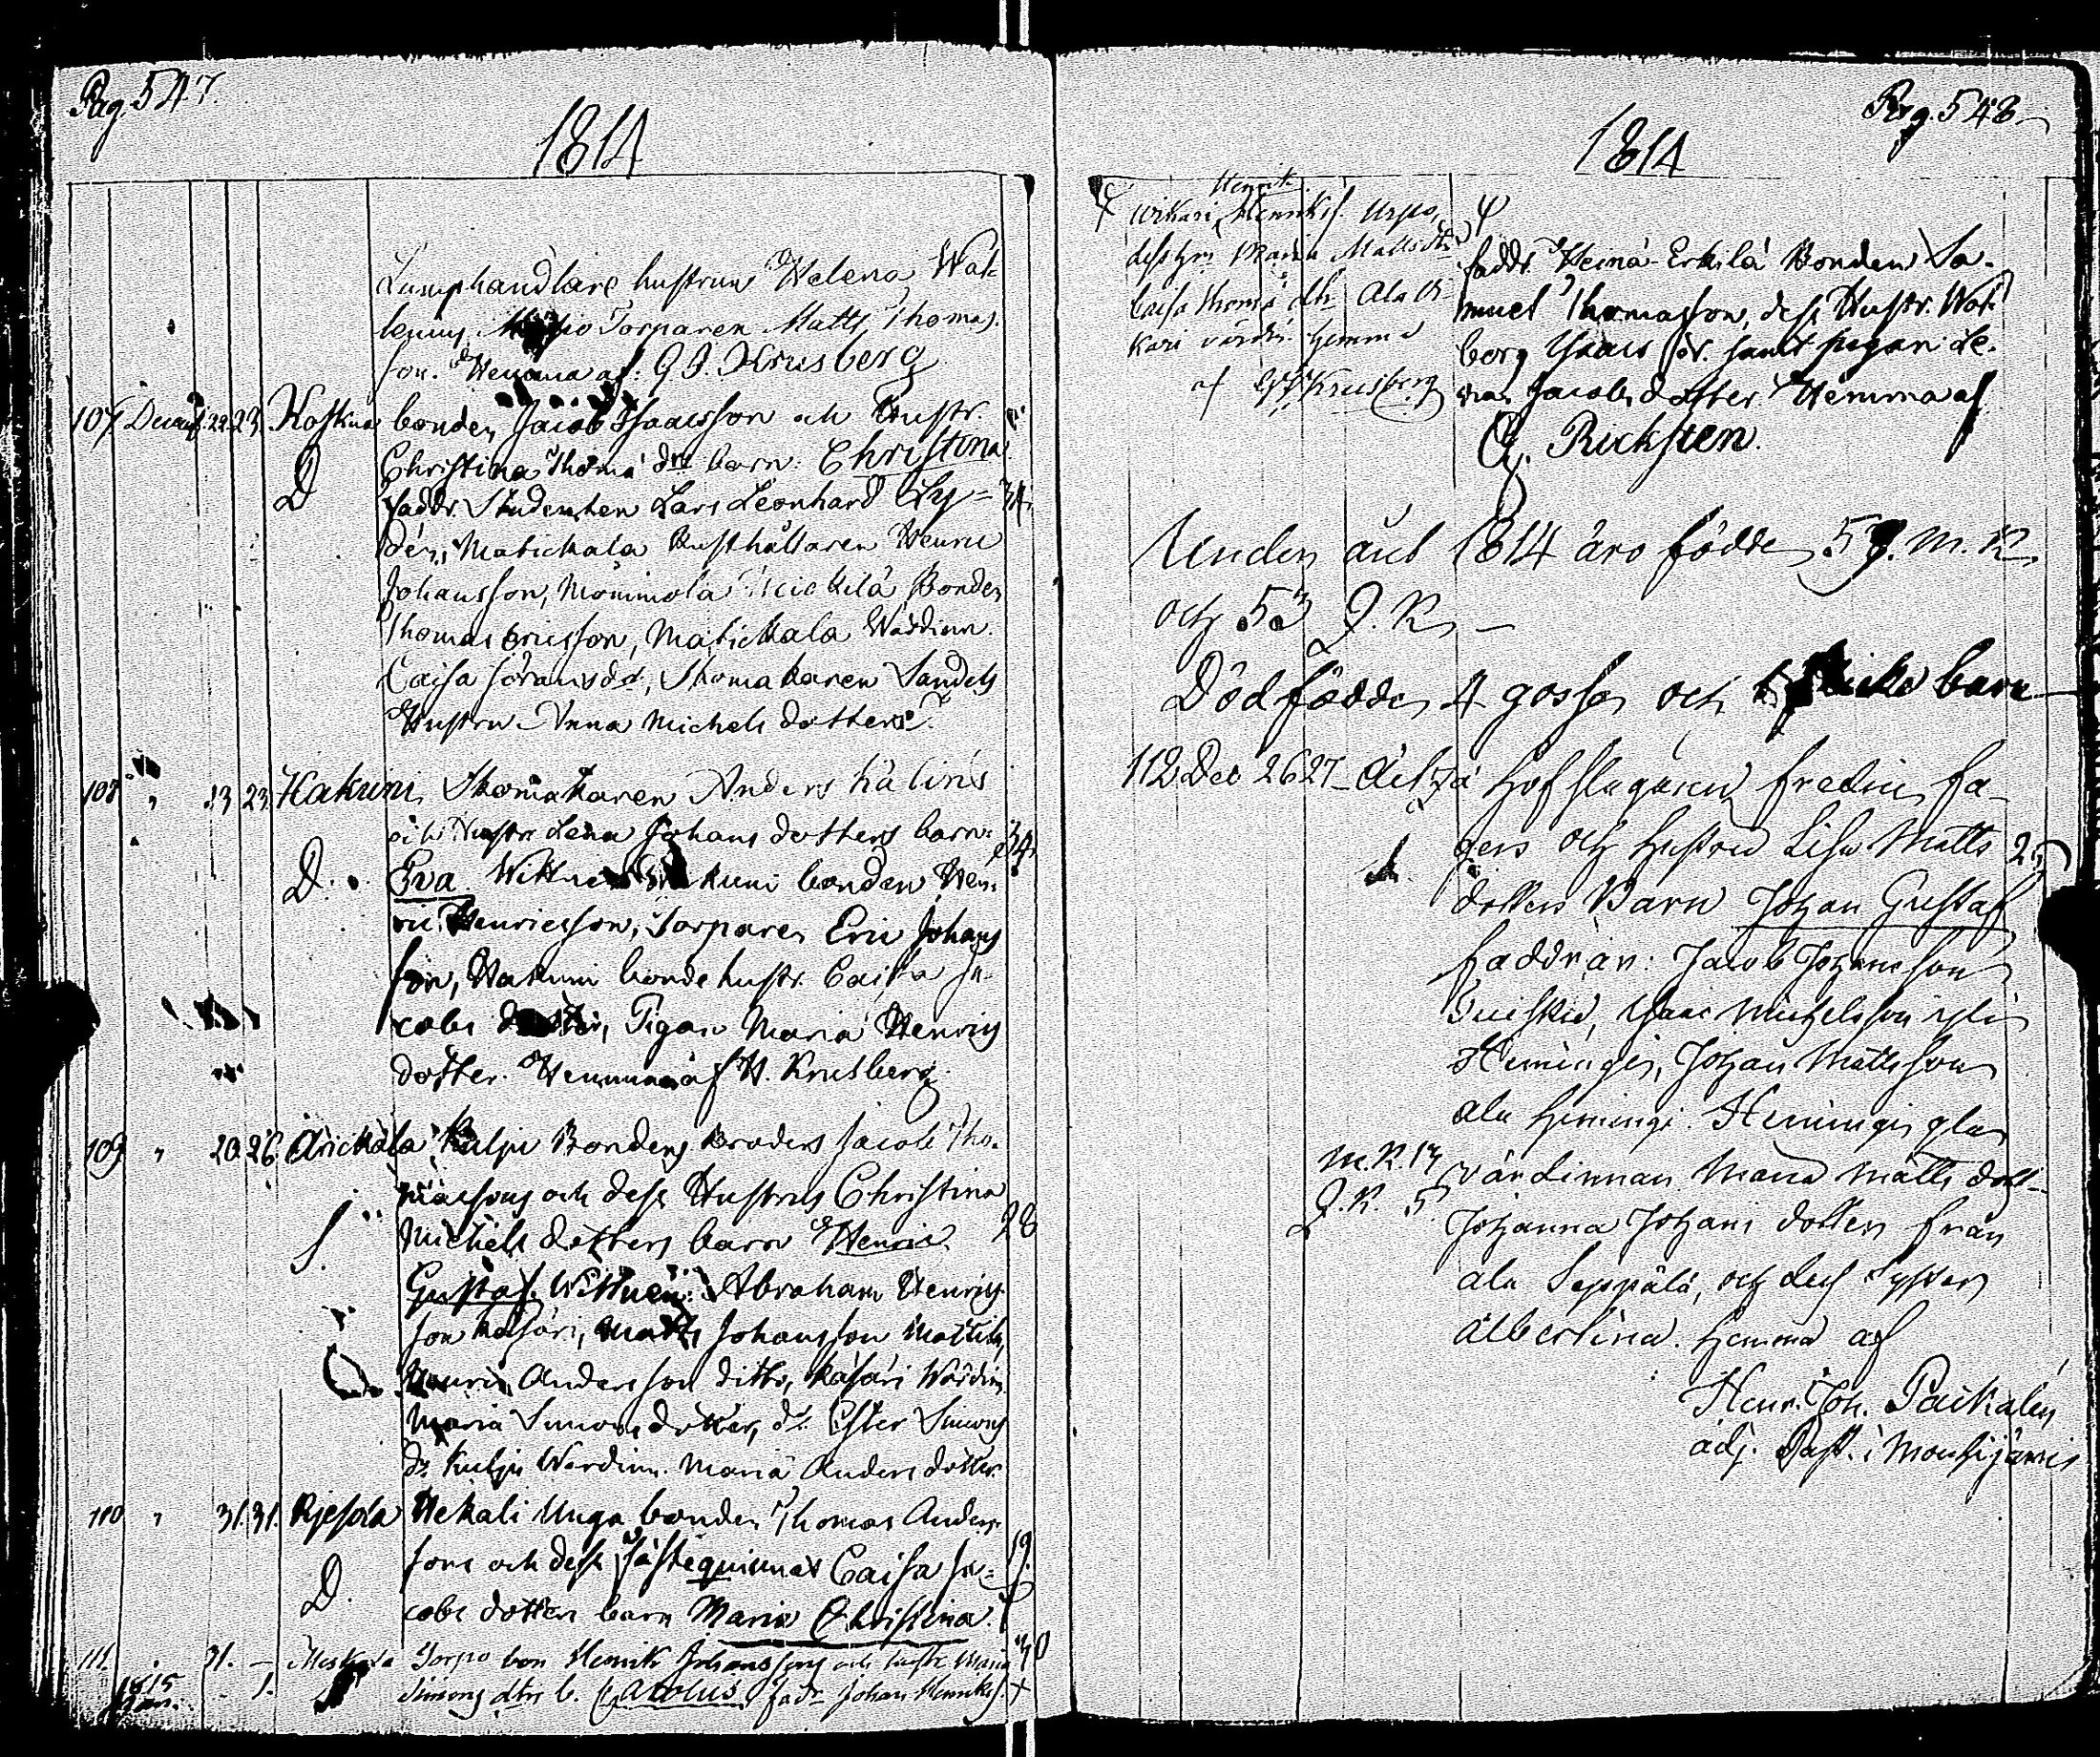 Pag. 547.
1814
Lumphandlare hustrun Helena Wak-
lenius, Torparen Matts Thomas-
son. Hemma af: G J. Krusberg
107 Decemb. 22. 23. Koskua bonden Jacob Isaacsson och Hustr.
D Christina Thomæ dtrs barn: Christina.
faddr. Studenten Lars Leonhard Ly= 34.
dén, Matickala Rusthållaren Henric
Johansson, Mommola Bonden
Thomas Ericsson, Matickala Wärdinn.
Caisa Göransdr, Skomakaren Sandels
Hustru Anna Michels dotter.
108 " 23 23. Hakuni Skomakaren Anders Hälins
och Hustr. Lena Johans dotters barn: 34.
D. Eva. Wittnen Hakuni bonden Hen-
ric Henricsson, Torparen Eric Johans
son, Hakuni bonde hustr. Caisa Ja-
cobs dotter, Pigan Maria Henrics
dotter. Hemma af H. Krusberg.
109 " 20. 26 Arickala Kulju Bondens Broders Jacob Tho-
massons och dess Hustrus Christina
Michels dotters barn Henric 28
Gustaf. Wittnen: Abraham Henrics-
son Kasari, Matts Johansson Mattila,
Henric Andersson ditto, Kasari Wärdin.
Maria Simons dotter, do Ester Simons
dr Kulju Wärdinn. Maria Anders dotter.
110 " 31. 31. Kjesola Hekali Unga bonden Thomas Anders-
sons och dess fästeqvinnas Caisa Ja= 19.
D. cobs dotters barn Maria Christina. ψ
111. " 31. — Torpo bon Henrik Johanssons och hustr. Maria 30
1815 Jan. 1. Simons dtrs b. Carolus. fadr Johan Henriks. +
Pag. 548
1814
Henrik
wikari, Henriks. Urpo,
dess hu Maria Matts dtr
Caisa Thomæ dtr Ala Wi-
kari värdin. hemma
af G J Krusberg
ψ
faddr. Heinä-Erkilä Bonden Sa-
muel Thomasson, dess Hustr. Wal-
borg Isaacs dr. samt pigan Le-
na Jacobs dotter Hemma af
G. Ricksten.
Under året 1814 äro födde 59. M. K.
och 53 Q. K. —
Dödfödde 4 gossar och barn
112 Dec 26 27 Hofslagaren Fredric Fa-
gers och hustru Lisa Matts 25
dotters Barn Johan Gustaf
faddrar: Jacob Johansson
Isaac Michelsson
Heimingi, Johan Mattsson
ala Heimingi. Heimingi
M. K. 13 värdinnan Maria Matts dott-
Q. K. 5 Johanna Johans dotter från
ala Seppälä, och dess Syster
Albertina. hemma af
Henr. Joh. Paikalén
adj. Past. i Mouhijärvi